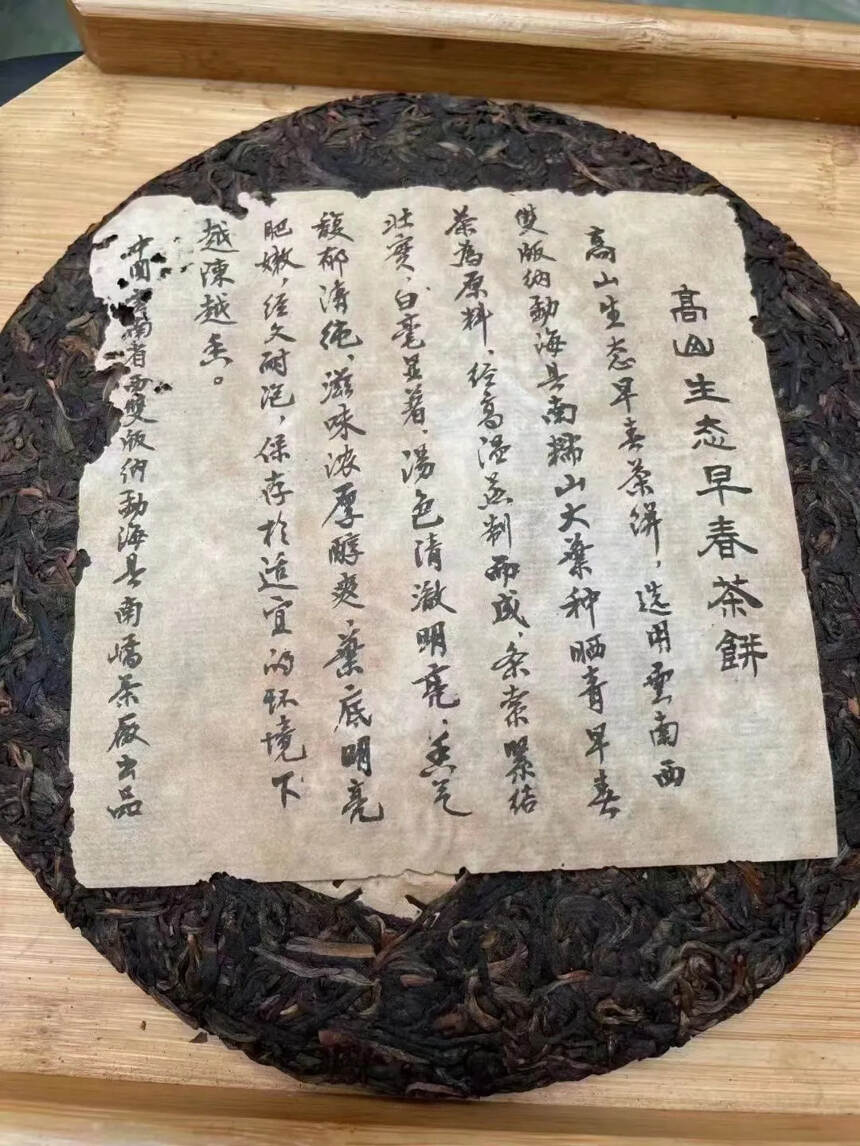 高山生态早春茶餅
高山生态早春茶餅，选用雲南西
雙版纳勐海县南糯山大葉种晒青早春
茶为原料，经高温蒸制而成，条索緊结
壮实，白毫显著，湯色清澈明亮，香气
馥郁清纯，滋味浓厚醇爽，葉底明亮
肥嫩，经久耐泡，保存於适宜的环境下
越陳越香。
中国雲南省西雙版纳勐海县南嶠茶厰出品